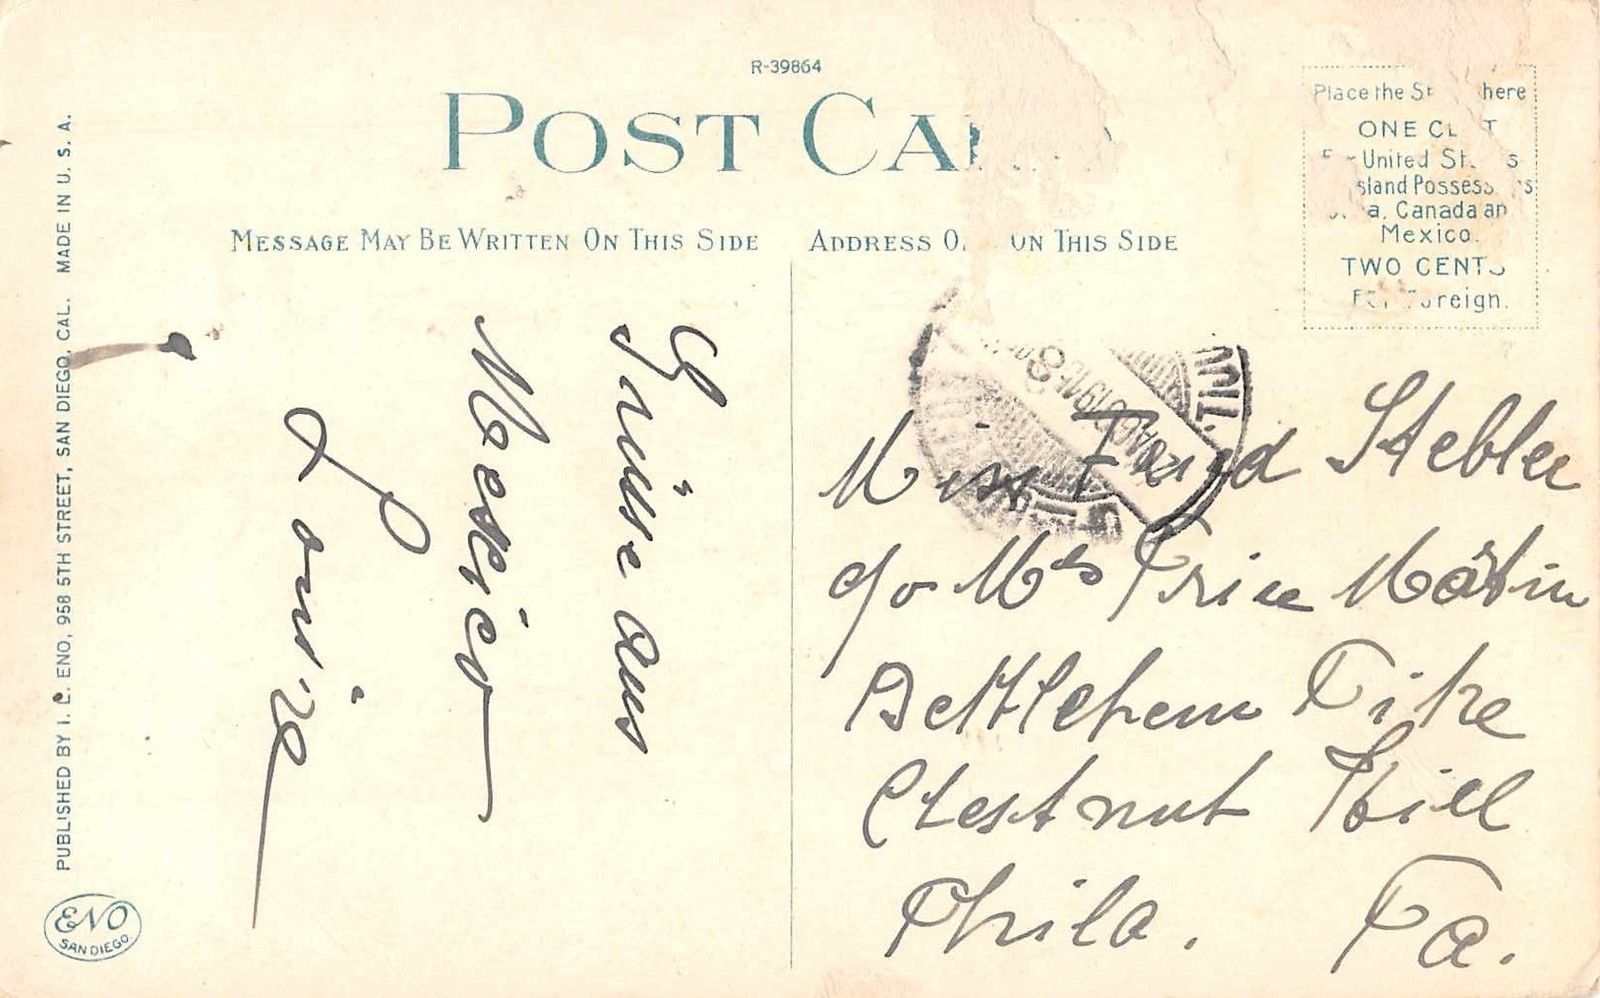 R-39864
POST CA
MESSAGE MAY BE WRITTEN ON THIS SIDE
ADDRESS ON THIS SIDE
Place the here
ONE
United
Possess
Canada an
Mexico.
TWO CENTS
Foreign.
PUBLISHED BY I. L. ENO, 958 5TH STREET, SAN DIEGO, CAL. MADE IN U. S. A.
ENO
SAN DIEGO.
Grüsse aus
Mexico
Louise
Miss Stebler
c/o Mrs Martin
Bethlehem Pike
Chestnut Hill
Phila. Pa.